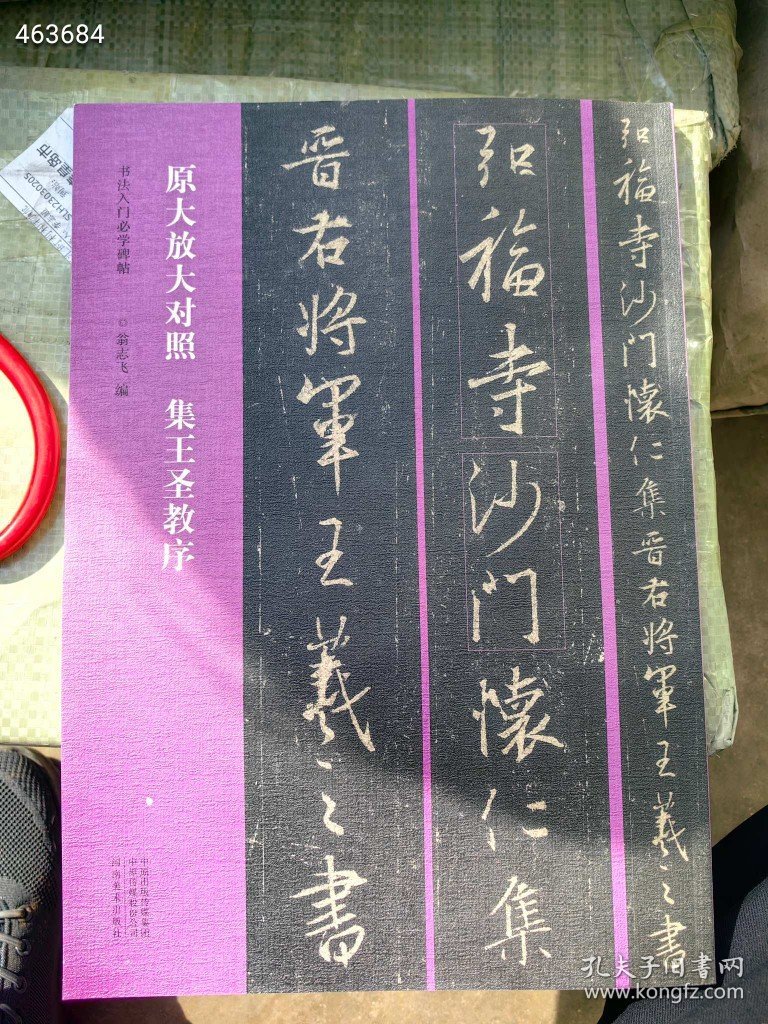 463684
弘福寺沙门懷仁集晋右将軍王羲之書
弘福寺沙门懷仁集
晋右将軍王羲之書
原大放大对照 集王圣教序
书法入门必学碑帖 © 翁志飞 编
中原出版传媒集团
中原传媒股份公司
河南美术出版社
SLH23030205
孔夫子旧書网
www.kongfz.com